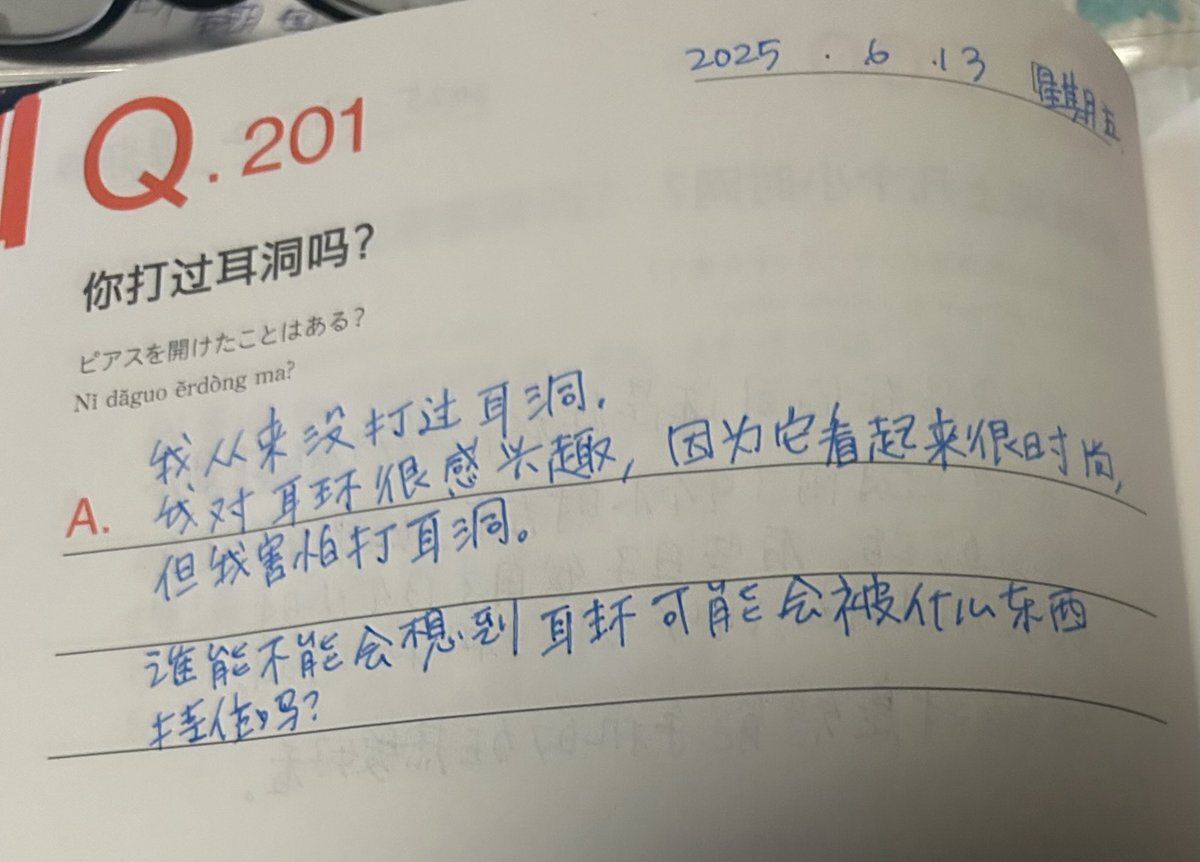 2025 . 6 .13 星期五
Q. 201
你打过耳洞吗?
ピアスを開けたことはある?
Nǐ dǎguo ěrdòng ma?
我从来没打过耳洞.
我对耳环很感兴趣, 因为它看起来很时尚,
A.
但我害怕打耳洞。
谁能不能会想到耳环可能会被什么东西
挂住吗?